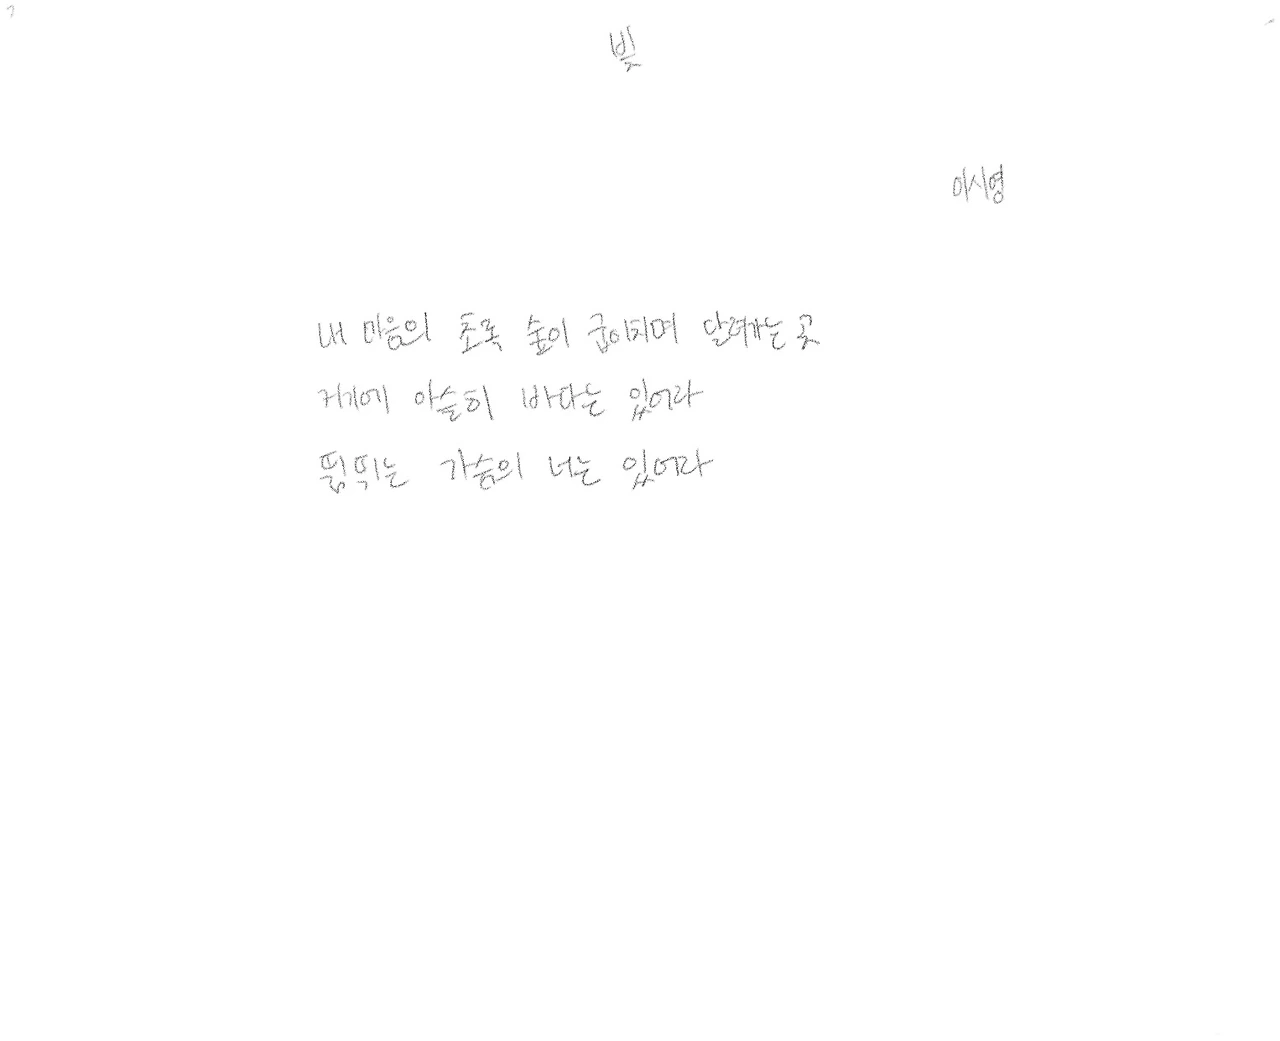 빛
이시영
내 마음의 초록 숲이 굽이치며 달려가는 곳
거기에 아슬히 바다는 있어라
뜀뛰는 가슴의 너는 있어라